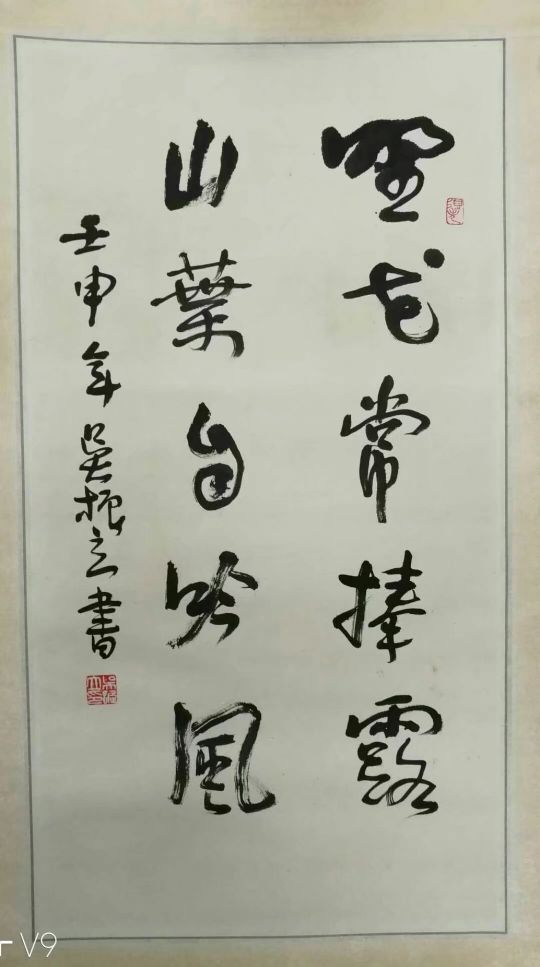 野花常捧露
山葉自吟風
壬申年吳振立書
V9